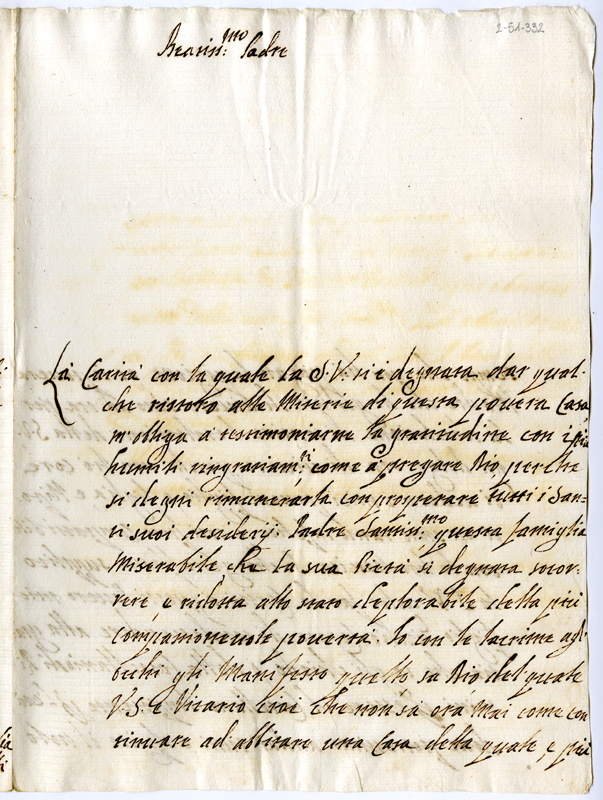 2-51-332
Beatiss:mo Padre
La Carità con la quale la S. V. si è degnata dar qual-
che ristoro alle Miserie di questa povera Casa
m'obliga a testimoniarne la gratitudine con i più
humili ringratiam:ti come a pregare Dio perche
si degni rimunerarla con prosperare tutti i San-
ti suoi desiderij. Padre Santiss:mo questa famiglia
Miserabile che la sua Pietà si degnata socor-
rere è ridotta allo stato deplorabile della più
compassionevole povertà. Io con le lacrime agl'
ochi gli Manifesto quello sa Dio del quale
V. S. è Vicario cioè che non sa ora mai come con
tinuare ad abitare una Casa della quale, è più